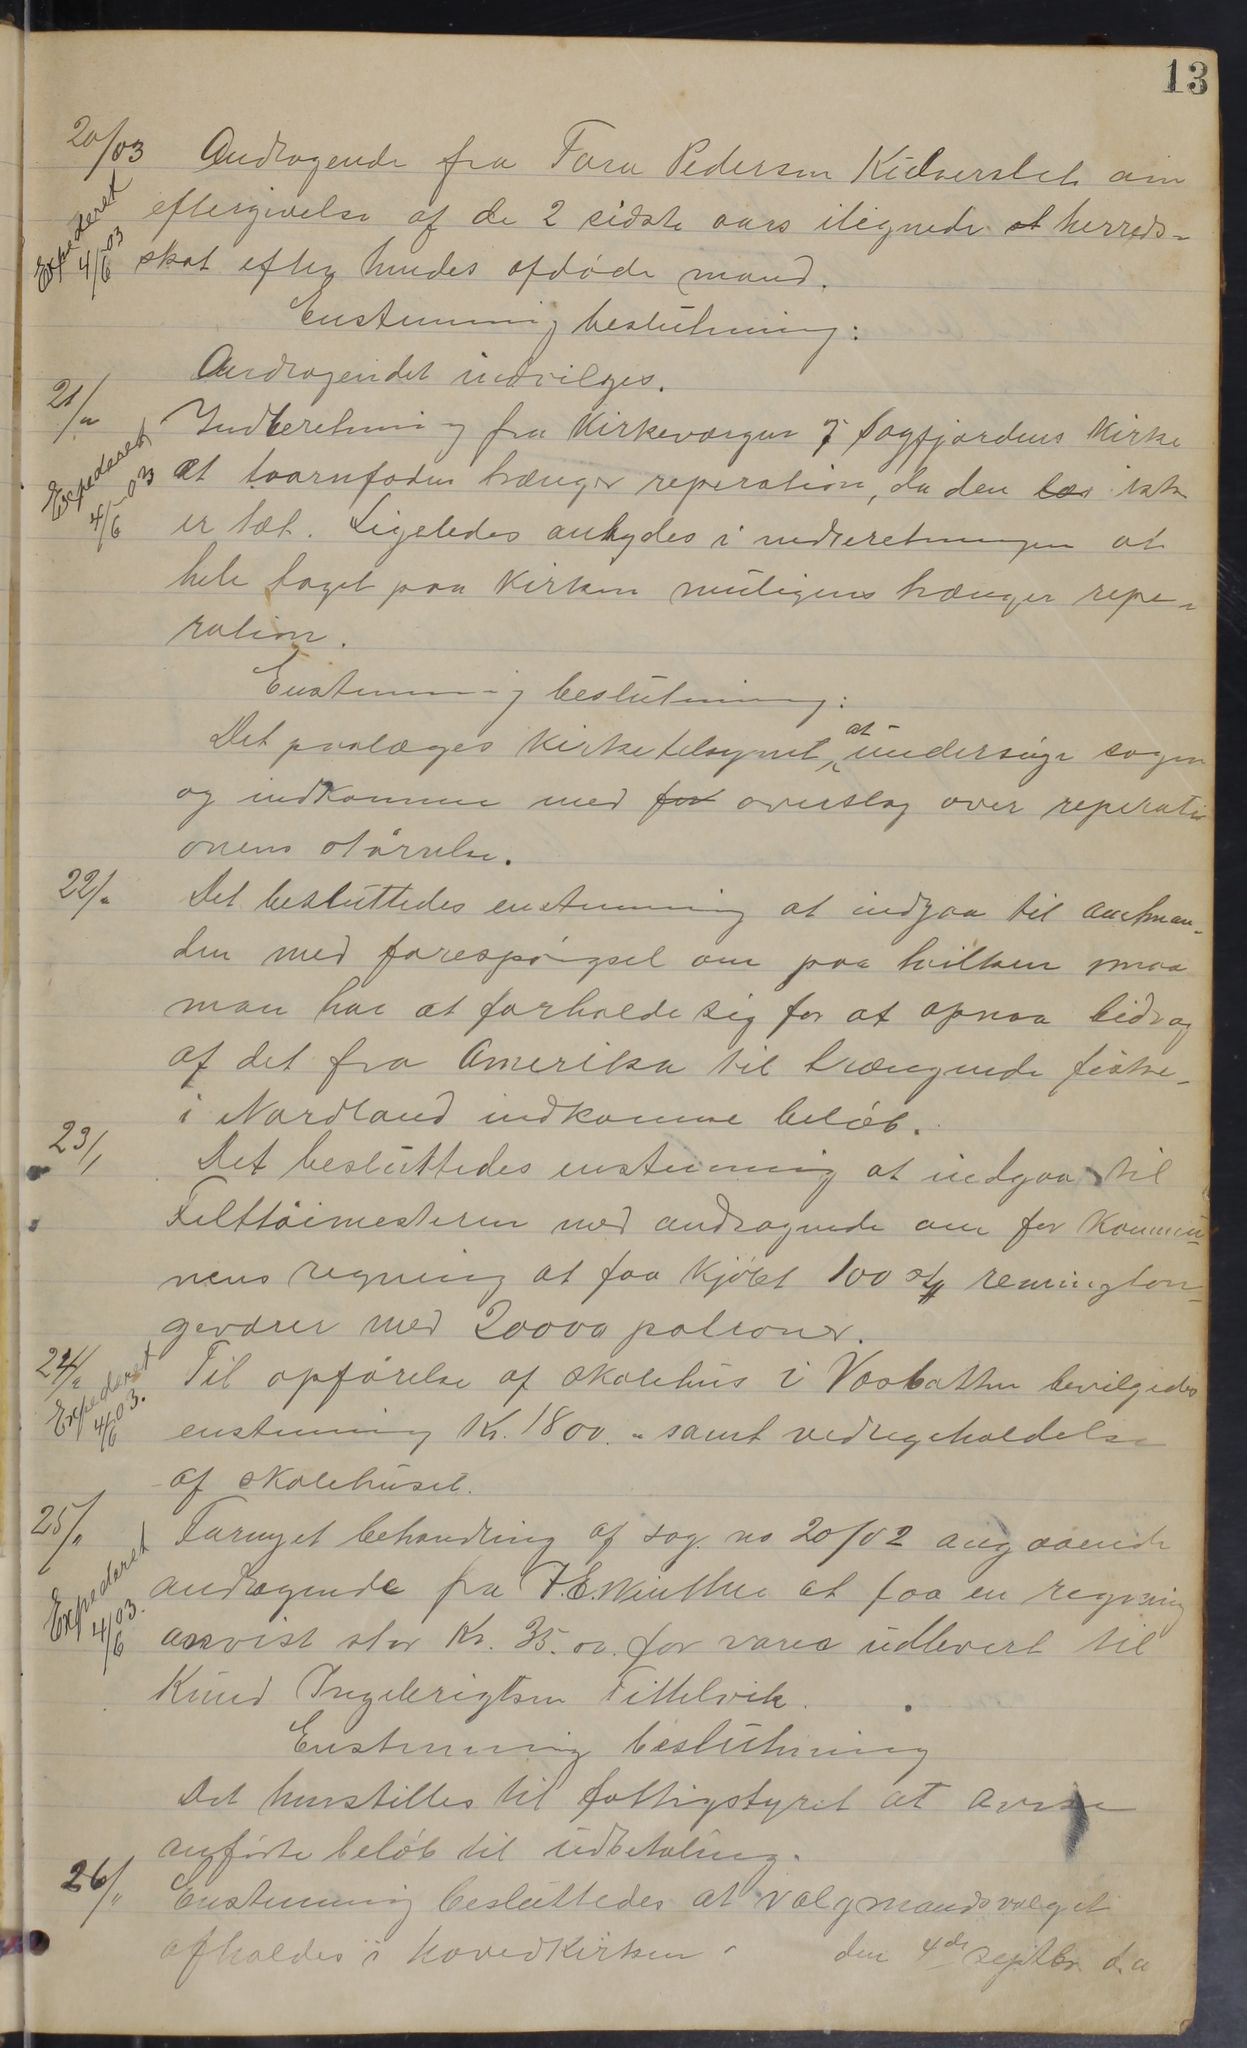 13
20/03 Andragende fra Fara Pedersen Kilverslet om
eftergivelse af de 2 sidste aars ilignede at herreds-
skat efter hendes afdøde mand.
Expederet 4/6 03
Enstemmig beslutning:
Andragendet indvilges.
21/"
Indberetning fra Kirkeværgen i Sagfjordens Kirke
at taarnfoden trænger reperation, da den ikke
er tæt. Ligeledes antydes i indberetningen at
hele taget paa Kirken muligens trænger repe-
ration.
Expederet 4/6-03
Enstemmig beslutning:
Det paalægges Kirketilsynet, at undersøge sagen
og indkomme med for overslag over reperati
onens størrelse.
22/"
Det besluttedes enstemmig at indgaa til amtman-
den med forespørgsel om paa hvilken maa
man har at forholde sig for at opnaa bidrag
af det fra Amerika til trængende fiske-
i Nordland indkomne beløb.
23/1
Det besluttedes enstemmig at indgaa til
Felttøimesteren med andragende om for Kommu-
nens regning at faa kjøbt 100 stk remington-
geværer med 20000 patroner.
24/"
Til opførelse af skolehus i Vasbotten bevilgedes
enstemmig Kr. 1800." samt vedligeholdelse
af skolehuset.
Expederet 4/6 03.
25/"
Fornyet behandling af sag no 20/02 angaaende
andragende fra F.E. Winther at faa en regning
anvist stor Kr. 35.00. for varer udlevert til
Knud Ingebrigtsen Fittelvik.
Expederet 4/6 03.
Enstemmig beslutning
Det henstilles til fattigstyret at anvise
anførte beløb til udbetaling.
26/"
Enstemmig besluttedes at valgmandsvalget
afholdes i hovedkirken den 4de septbr d.a